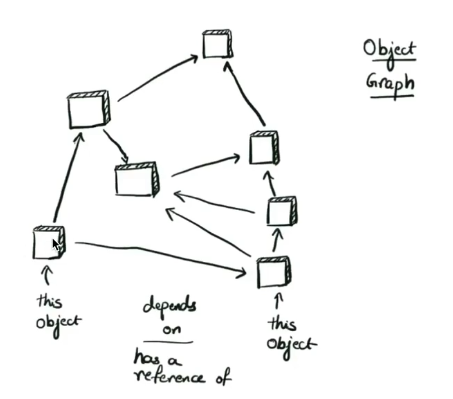 Object
Graph
this
object
depends
on
has a
reference of
this
object